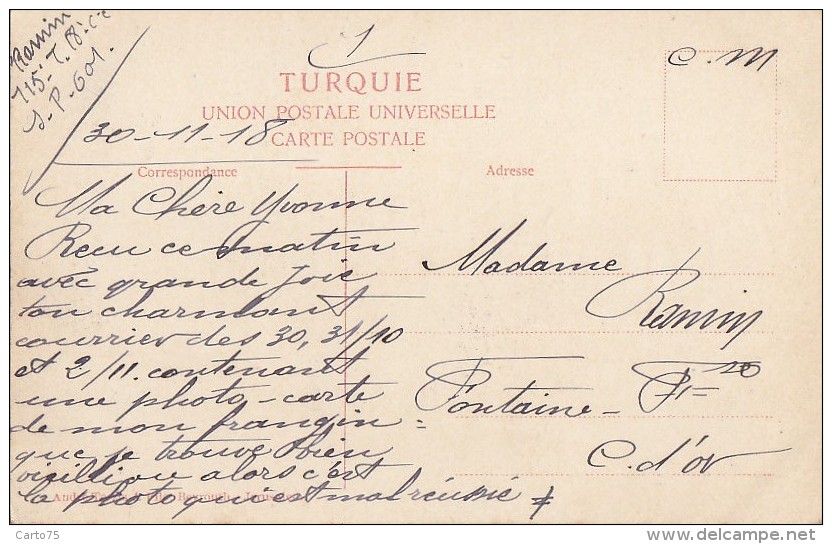 Ramin
115 T. 18-C-C
S. P. 601.
1
C. M
TURQUIE
UNION POSTALE UNIVERSELLE
CARTE POSTALE
30-11-18
Correspondance
Adresse
Ma Chère Yvonne
Recu ce matin
avec grande Joie
ton charmant
courrier des 30, 31/10
et 2/11. contenant
une photo-carte
de mon frangin =
que je trouve bien
vieilli ou alors c'est
la photo qui est mal réussie
Madame
Ramin
Fontaine - Fse
C. d'or
Carto75
delcampe.net